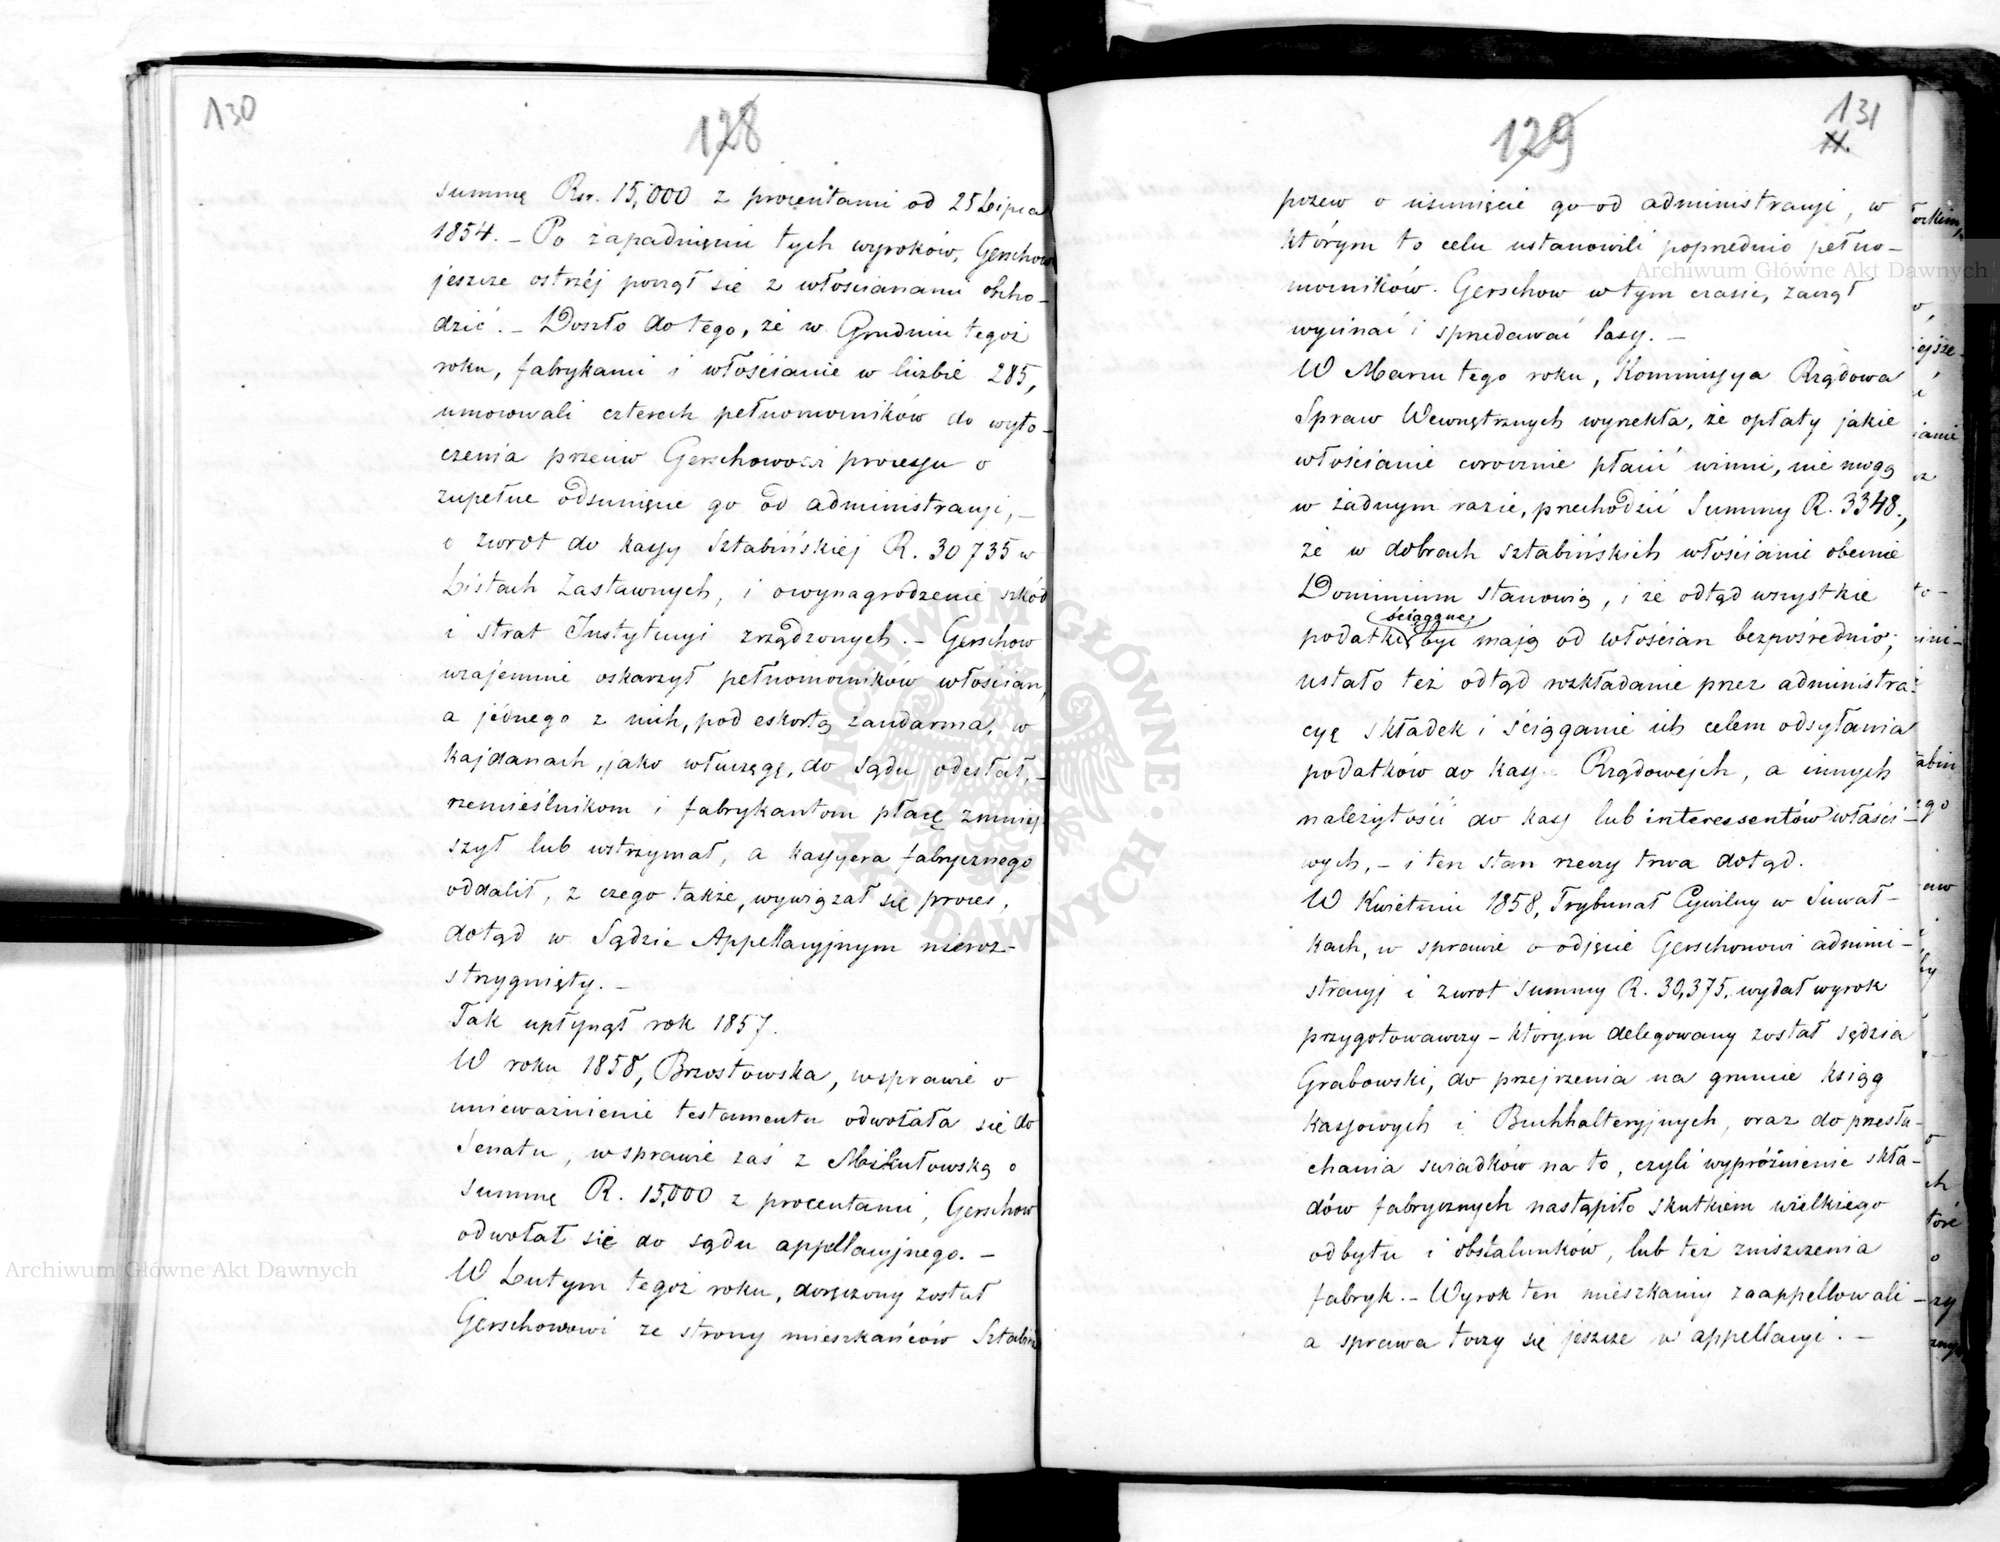 130
128
summę Rsr. 15,000 z procentami od 25 Lipca
1854. – Po zapadnięciu tych wyroków, Gerschow
jeszcze ostrzéj począł się z włościanami obcho-
dzić. – Doszło do tego, że w Grudniu tegoż
roku, fabrykanci i włościanie w liczbie 285,
umocowali czterech pełnomocników do wyto-
czenia przeciw Gerschowowi processu o
zupełne odsunięcie go od administracyi, –
o zwrot do kassy Sztabińskiéj R. 30735 w
Listach Zastawnych, i o wynagrodzenie szkód
i strat Instytucyi zrządzonych. – Gerschow
wzajemnie oskarżył pełnomocników włościan,
a jednego z nich, pod eskortą żandarma, w
kajdanach, jako włuczęgę, do sądu odesłał, –
rzemieślnikom i fabrykantom płacę zmniej-
szył lub wstrzymał, a kassyera fabrycznego
oddalił, z czego także, wywiązał się proces,
dotąd w Sądzie Appellacyjnym nieroz-
strzygnięty. –
Tak upłynął rok 1857.
W roku 1858, Brzostowska, w sprawie o
unieważnienie testamentu odwołała się do
Senatu, w sprawie zaś z Mikułowską o
summę R. 15,000 z procentami, Gerschow
odwołał się do sądu appellacyjnego. –
W Lutym tegoż roku, doręczony został
Gerschowowi ze strony mieszkańców Sztabina
131
11.
129
pozew o usunięcie go od administracyi, w
którym to celu ustanowili poprzednio pełno-
mocników. Gerschow w tym czasie, zaczął
wycinać i sprzedawać lasy. –
W Marcu tego roku, Kommissya Rządowa
Spraw Wewnętrznych wyrzekła, że opłaty jakie
włościanie corocznie płacić winni, nie mogą
w żadnym razie, przechodzić Summy R. 3348.,
że w dobrach sztabińskich włościanie obecnie
Dominium stanowią, i że odtąd wszystkie
ściągane
podatki być mają od włościan bezpośrednio;
ustało też odtąd rozkładanie przez administra-
cyę składek i ściąganie ich celem odsyłania
podatków do kass Rządowych, a innych
należytości do kass lub interessentów właści-
wych, – i ten stan rzeczy trwa dotąd.
W Kwietniu 1858, Trybunał Cywilny w Suwał-
kach, w sprawie o odjęcie Gerschowowi admini-
stracyj i zwrot summy R. 30,375, wydał wyrok
przygotowawczy – którym delegowany został sędzia
Grabowski, do przejrzenia na gruncie ksiąg
kassowych i Buchhalteryjnych, oraz do przesłu-
chania swiadków na to, czyli wypróżnienie skła-
dów fabrycznych nastąpiło skutkiem wielkiego
odbytu i obstalunków, lub też zniszczenia
fabryk. – Wyrok ten mieszkańcy zaappellowali
a sprawa toczy się jeszcze w appellacyi. –
Archiwum Główne Akt Dawnych
Archiwum Główne Akt Dawnych
ARCHIWUM GŁÓWNE AKT DAWNYCH